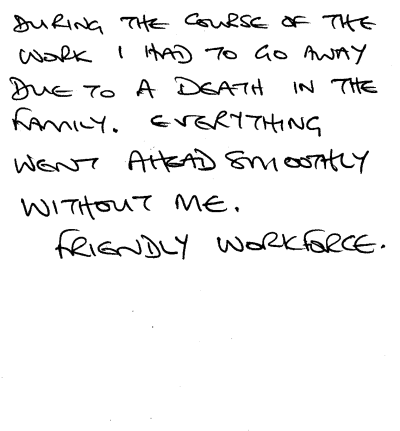 DURING THE COURSE OF THE
WORK I HAD TO GO AWAY
DUE TO A DEATH IN THE
FAMILY. EVERYTHING
WENT AHEAD SMOOTHLY
WITHOUT ME.
FRIENDLY WORKFORCE.